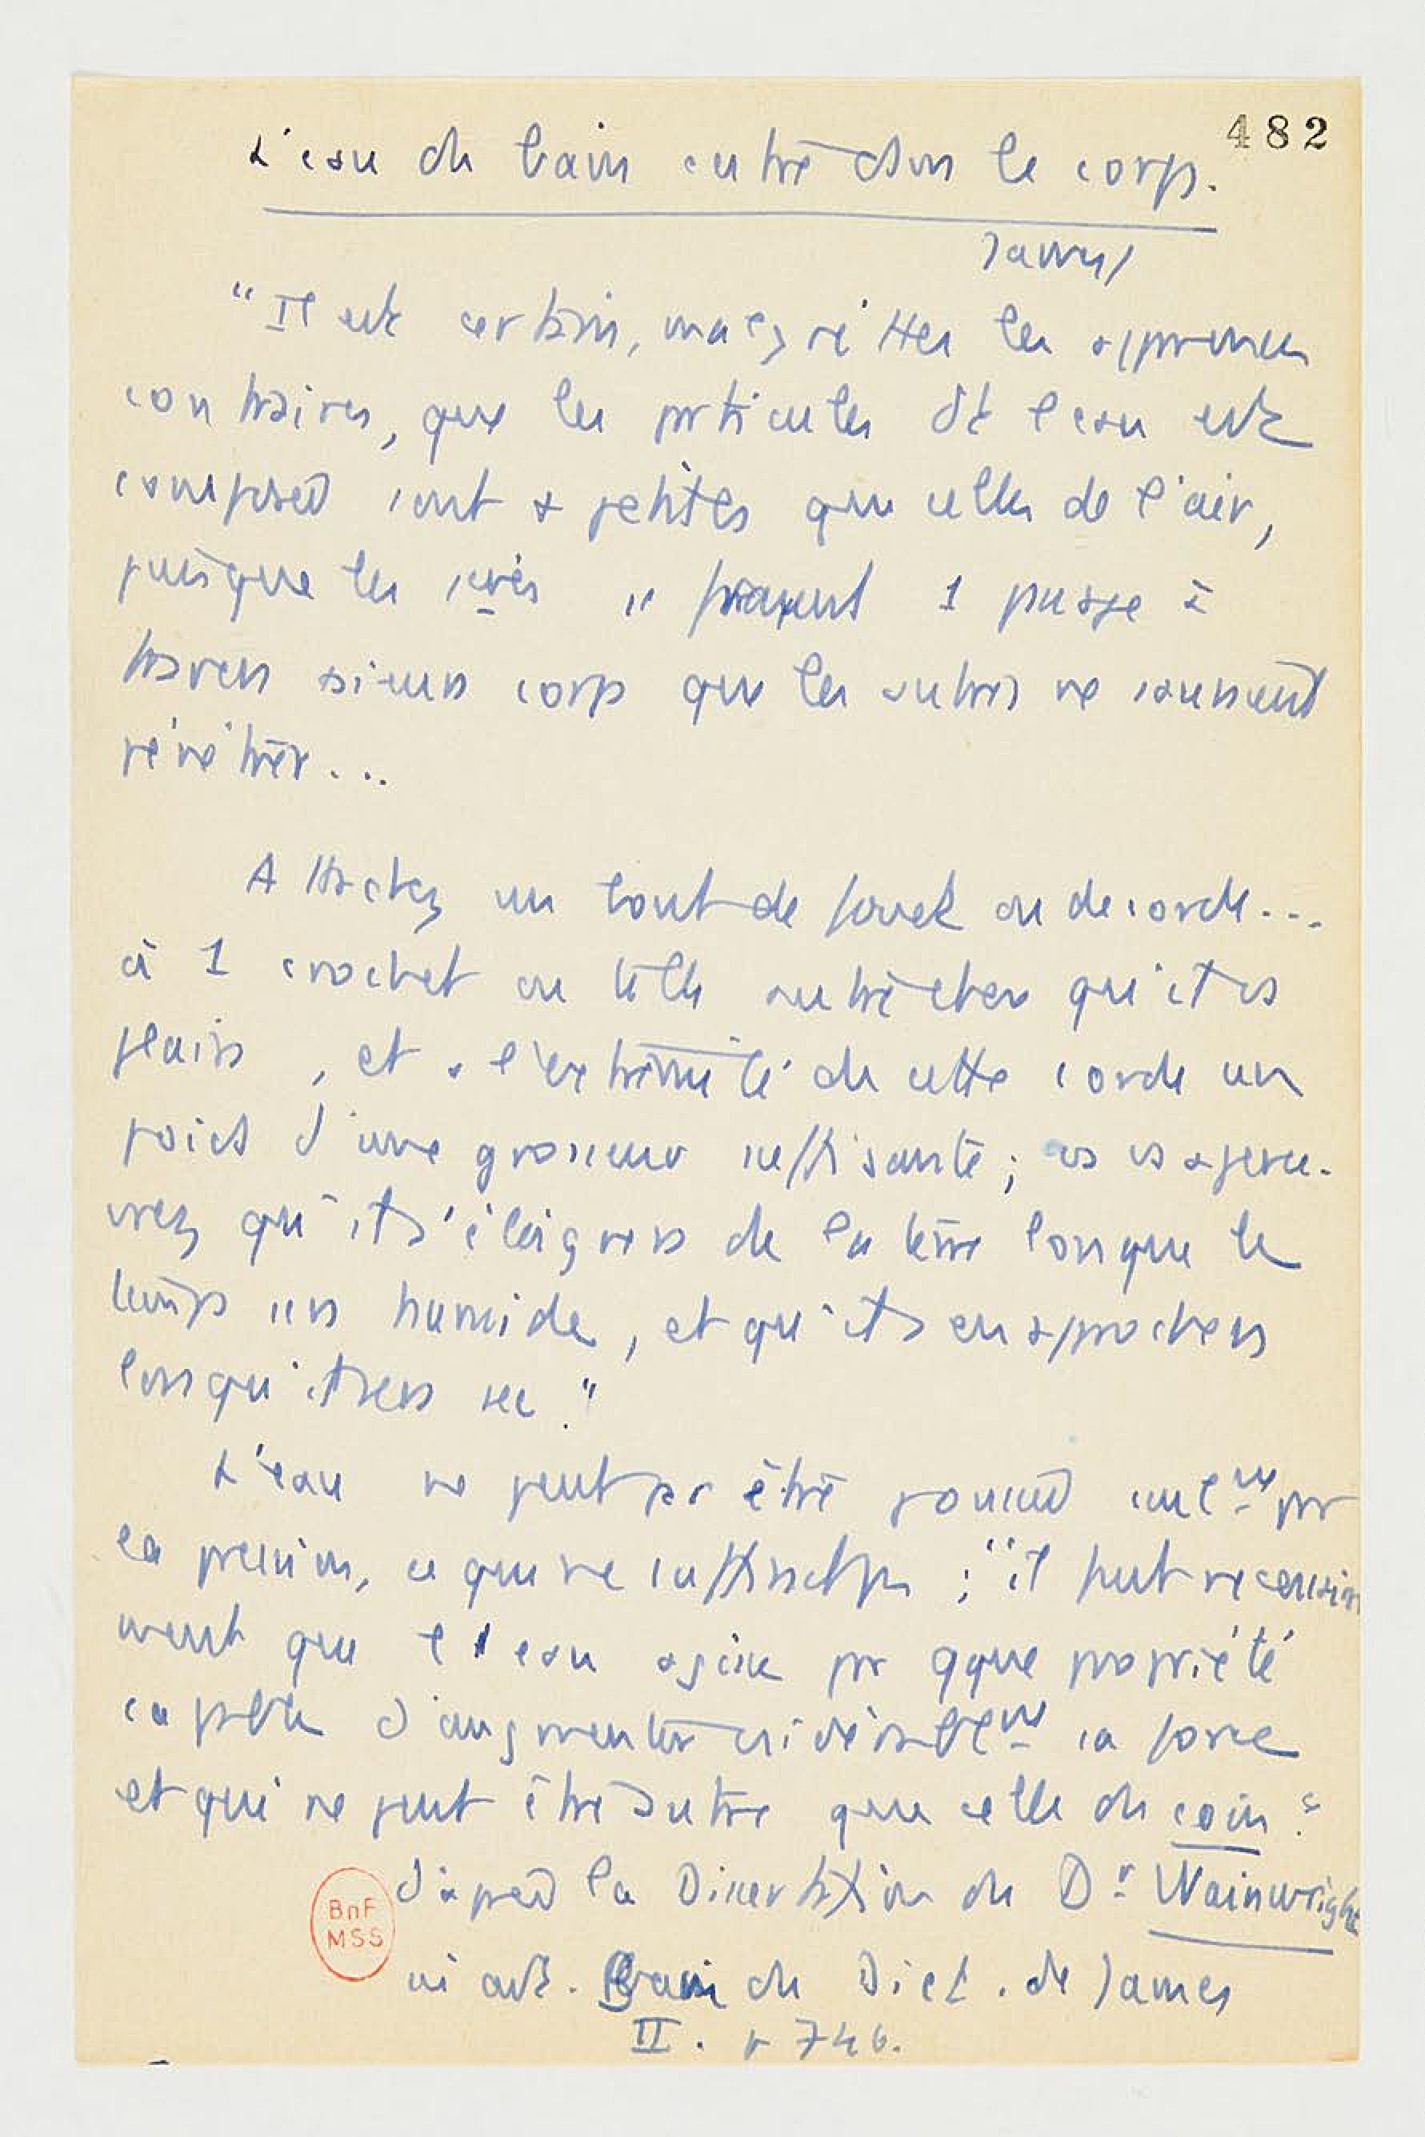 482
L'eau du bain entre dans le corps.
James
"Il est certain, malgré ttes les apparences
contraires, que les particules dt l'eau est
composée sont + petites que celles de l'air,
puisque les 1ères " fraient 1 passage à
travers certains corps que les autres ne sauraient
pénétrer...
Attachez un bout de fouet ou de corde...
à 1 crochet ou telle autre chose qu'il vs
plaira, et à l'extrémité de cette corde un
poids d'une grosseur suffisante; vs vs aperce-
vrez qu'il s'éloignera de la terre lorsque le
temps sera humide, et qu'il s'en approchera
lorsqu'il sera sec."
L'eau ne peut pas être poussée seulmt par
la pression, ce qui ne suffirait pas; "il faut nécessaire
ment que l'eau agisse par qque propriété
capable d'augmenter csidérablemt sa force
et qui ne peut être autre que celle du coin."
d'après la Dissertation du Dr Wainwright
in art. Bain du Dict. de James
II. p 746.
BnF
MSS